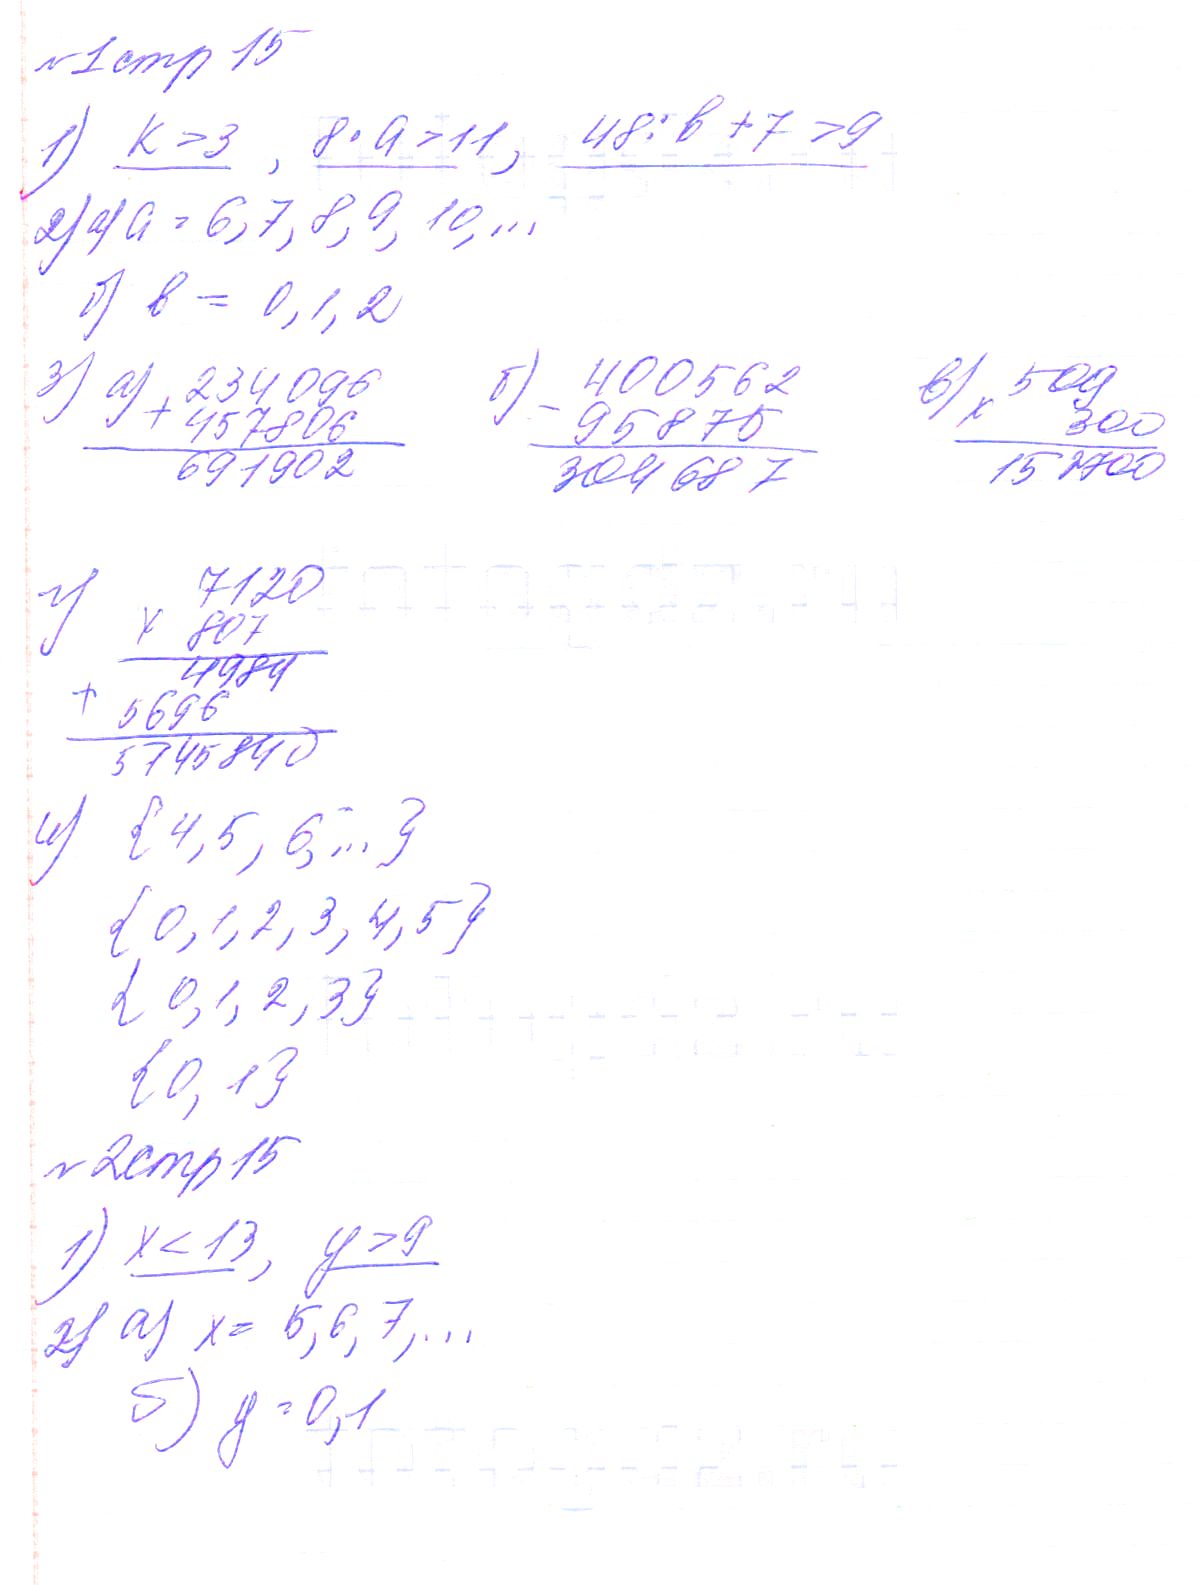 №1 стр 15
1) k > 3, 8 · a > 11, 48 : b + 7 > 9
2) а) a = 6, 7, 8, 9, 10, ...
б) b = 0, 1, 2
3) а) 234096 б) 400562 в) 509
+ 457806 - 95875 x 300
691902 304687 152700
г) 7120
x 807
4984
+ 5696
5745840
4) {4, 5, 6, ...}
{0, 1, 2, 3, 4, 5}
{0, 1, 2, 3}
{0, 1}
№2 стр 15
1) x < 13, y > 9
2) а) x = 5, 6, 7, ...
б) y = 0, 1